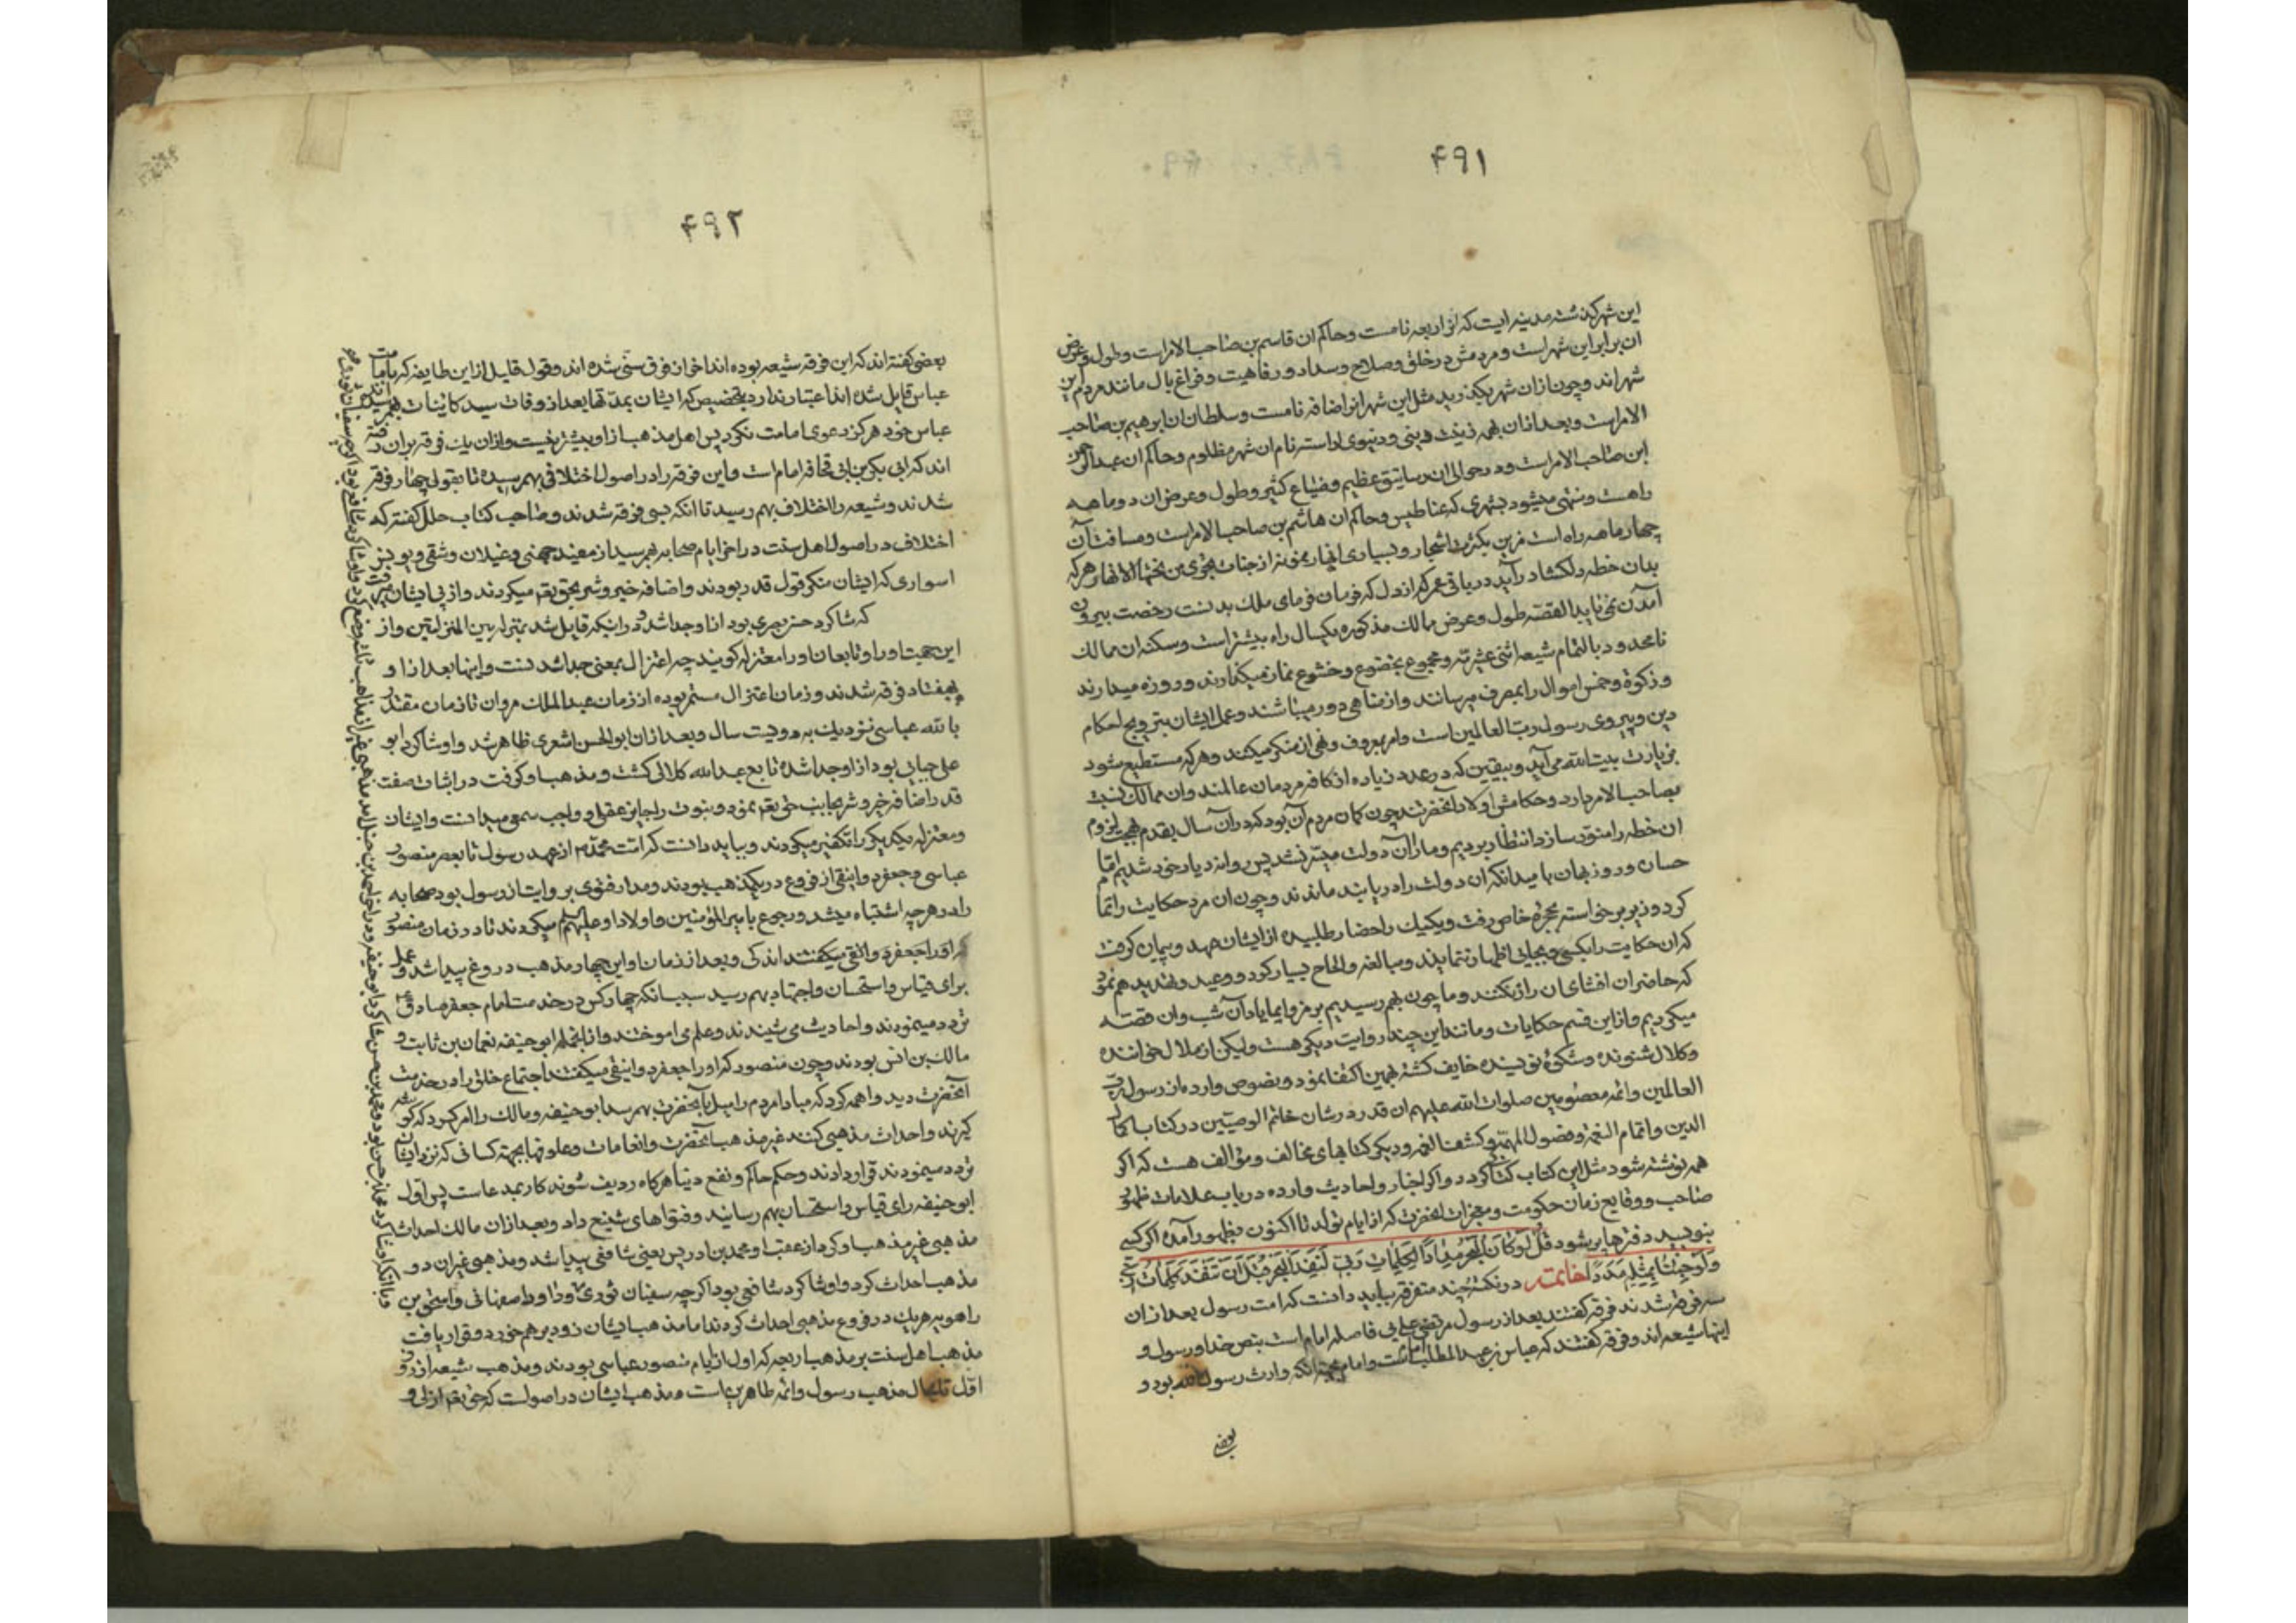 ۴۹۱
این شهر گذشته مدینه ایست که نزاربعه نامست و حاکم ان قاسم بن صاحب الامر است و طول و عرض
ان برابر این شهر است و مردمش در خلق و صلاح و سداد و رفاهیت و فراغ بال مانند مردم این
شهراند و چون ازان شهر بگذرید مثل این شهر انرا ضافه نامست و سلطان ان ابرهیم بن صاحب
الامر است و بعد ازان بهمه زینت دینی و دنیوی اراسته نام ان شهر مظلوم و حاکم ان عبدالرحمن
ابن صاحب الامر است و در حوالی ان رساتیق عظیم و ضیاع کثیر و طول و عرض ان دو ماهه
راهست و منتهی میشود بشهری که عناطیس و حاکم ان هاشم بن صاحب الامر است و مسافت آن
چهار ماهه راه است مزین بکثرت اشجار و بسیاری انهار نمونه از جنات تجری من تحتها الانهار هر که
بدان خطه دلکشا درآید در باقی عمر که از دل که فرمان فرمای ملک بدنست رخصت بیرون
آمدن نمی یابد القصه طول و عرض ممالک مذکوره یکسال راه بیشتر است و سکنه ان ممالک
نامحدود بالتمام شیعه اثنی عشریه و مجموع بخضوع و خشوع نماز میکذارند و روزه میدارند
و زکوة و خمس اموال را بمصرف میرسانند و از مناهی دور میباشند و عمل ایشان بترویج احکام
دین و پیروی رسول رب العالمین است و امر بمعروف و نهی از منکر میکنند و هر که مستطیع شود
بزیارت بیت الله می آید و بیقین که در عدد زیاده از کافه مردمان عالمند و ان ممالک نسبت
بصاحب الامر دارد و حکامش اولاد آنحضرتند چون کمان مردم آن بود که در آن سال بقدم بهجت لزوم
ان خطه را منور سازد انتظار بردیم و ما را آن دولت میسر نشد پس روانه دیار خود شدیم اما
حسان و روزبهان بامید انکه ان دولت را دریابند ماندند و چون ان مرد حکایت را تمام
کرد وزیر برخواسته بحجره خاص رفت و یکیک را حضار طلبیده از ایشان عهد و پیمان کرفت
که ان حکایت را بکسی و بجایی اظهار ننمایند و مبالغه و الحاح بسیار کرد و وعید و تهدید هم نمود
که حاضران افشای ان راز نکنند و ما چون بهم رسیدیم برمز و ایما یاد آن شب و ان قصه
میکردیم و از این قسم حکایات و مانند این چند روایت دیکر هست ولیکن از ملال خواننده
و کلال شنونده و شکوۀ نویسنده خایف کشته بهمین اکتفا نمود و نصوص وارده از رسول رب
العالمین و ائمه معصومین صلوات الله علیهم ان قدر در شان خاتم الوصیین در کتاب اکمال
الدین و اتمام النعمة و فصول المهمة و کشف الغمه و دیکر کتابهای مخالف و مؤالف هست که اکر
همه نوشته شود مثل این کتاب کتابی کردد و اکر اخبار و احادیث وارده در باب علامات ظهور
صاحب و وقایع زمان حکومت و معجزات انحضرت که از ایام تولد تا اکنون بظهور آمده اکر کسی
بنویسد دفترها پر شود قل لو کان البحر مدادا لکلمات ربی لنفد البحر قبل ان تنفد کلمات ربی
ولو جئنا بمثله مددا خاتمه در نکته چند متفرقه بباید دانست که امت رسول بعد ازان
سه فرقه شدند فرقه کفتند بعد از رسول مرتضی علی بی فاصله امام است بنص خدا و رسول و
اینها شیعه اند و فرقه کفتند که عباس بن عبدالمطلب امامست و امام بجهة انکه وارث رسول الله بود و
بعضی
۴۹۲
بعضی کفته اند که این فرقه شیعه بوده اند اخر از فرق سنی شده اند و قول قلیل از این طایفه که بامامت
عباس قایل شده اند اعتبار ندارد بتخصیص که ایشان بمدتها بعد از وفات سید کاینات بهم رسیدند و
عباس خود هرکز دعوی امامت نکرد پس اهل مذهب از او بیشتر نیست و ازان یک فرقه بران رفته
اند که ابی بکر بن ابی قحافه امام است و این فرقه را در اصول اختلافی بهم رسیده تا بقولی چهار فرقه
شدند و شیعه را اختلاف بهم رسید تا انکه سی فرقه شدند و صاحب کتاب حلل کفته که
اختلاف در اصول اهل سنت در اخر ایام صحابه بهم رسید از معبد جهنی و غیلان دمشقی و یونس
اسواری که ایشان منکر قول قدر بودند و اضافه خیر و شر بحق تعم میکردند و از پی ایشان میرفت
که شاکرد حسن بصری بود از او جدا شد و در اینکه قایل شد بمنزله بین المنزلتین و از
این جهت او را و تابعان او را معتزله کویند چه اعتزال بمعنی جدا شدنست و اینها بعد از او
بهفتاد فرقه شدند و زمان اعتزال مستمر بوده از زمان عبدالملک مروان تا زمان مقتدر
بالله عباسی نزدیک به دویست سال و بعد ازان ابوالحسن اشعری ظاهر شد و او شاکرد ابو
علی جبایی بود از او جدا شده تابع عبدالله کلابی کشت و مذهب او کرفت در اثبات صفت
قدر اضافه خیر و شر بجانب حق تعم نمود و نبوت را جایز عقلی و واجب سمعی میدانست و ایشان
و معتزله یکدیکر را تکفیر میکردند و بباید دانست که امت محمد م از عهد رسول تا بعصر منصور
عباسی و جعفر دوانیقی از فروع در یکمذهب بودند و مدار فتوی بر روایت از رسول بود صحابه
را در هر چه اشتباه میشد رجوع بامیرالمؤمنین و اولاد او علیهم السلم میکردند تا در زمان منصور
که او را جعفر دوانقی میکفتند اندکی و بعد از زمان او این چهار مذهب دروغ پیدا شد و عمل
برای قیاس و استحسان و اجتهاد بهم رسید سبب انکه چهار کس در خدمت امام جعفر صادق ع
تردد مینمودند و احادیث می شیندند و علم می اموختند و از انجمله ابو حنیفه نعمان بن ثابت و
مالک بن انس بودند و چون منصور که او را جعفر دوانیقی میکفتند اجتماع خلق را در خدمت
آنحضرت دید واهمه کرد که مبادا مردم را میل بآنحضرت بهم رسد ابو حنیفه و مالک را امر کرد که کوشه
کیرند و احداث مذهبی کنند غیر مذهب آنحضرت و انعامات و علوفها بجهة کسانی که نزد ایشان
تردد مینمودند قرار دادند و حکم حاکم و نفع دنیا هر کاه ردیف شوند کار بمدعاست پس اول
ابو حنیفه رای قیاس و استحسان بهم رسانید و فتواهای شنیع داد و بعد ازان مالک احداث
مذهبی غیر مذهب او کرد از عقب او محمد بن ادریس یعنی شافعی پیدا شد و مذهبی غیر ان دو
مذهب احداث کرد و او شاکرد شافعی بود اکرچه سفیان ثوری و داود اصفهانی و اسحق بن
راهویه هر یک در فروع مذهبی احداث کردند اما مذهب ایشان زود برهم خورد و قرار یافت
مذهب اهل سنت بر مذهب اربعه که اول از ایام منصور عباسی بودند و مذهب شیعه از روز
اول تا بحال مذهب رسول و ائمه طاهرین است و مذهب ایشان در اصولست که حق تعم ازلی و